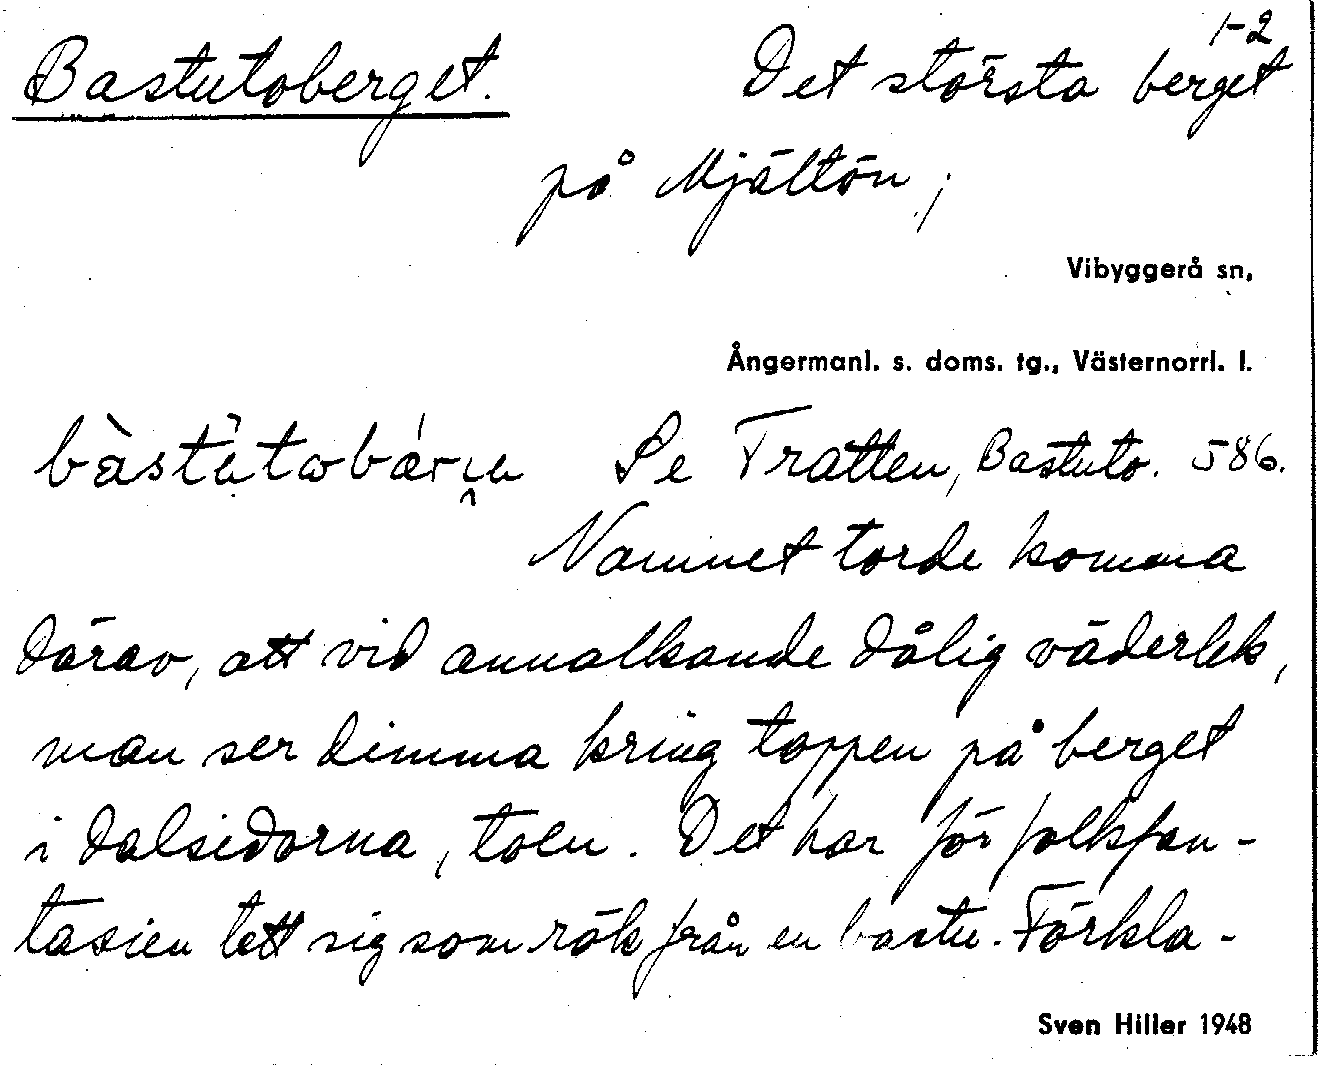 1-2
Bastutoberget. Det största berget
på Mjältön,
Vibyggerå sn,
Ångermanl. s. doms. tg., Västernorrl. l.
Se Tratten, Bastuto. 586.
Namnet torde komma
därav, att vid annalkande dålig väderlek,
man ser dimma kring toppen på berget
i dalsidorna, toen. Det har för folkfan-
tasien tett sig som rök från en bastu. Förkla-
Sven Hiller 1948